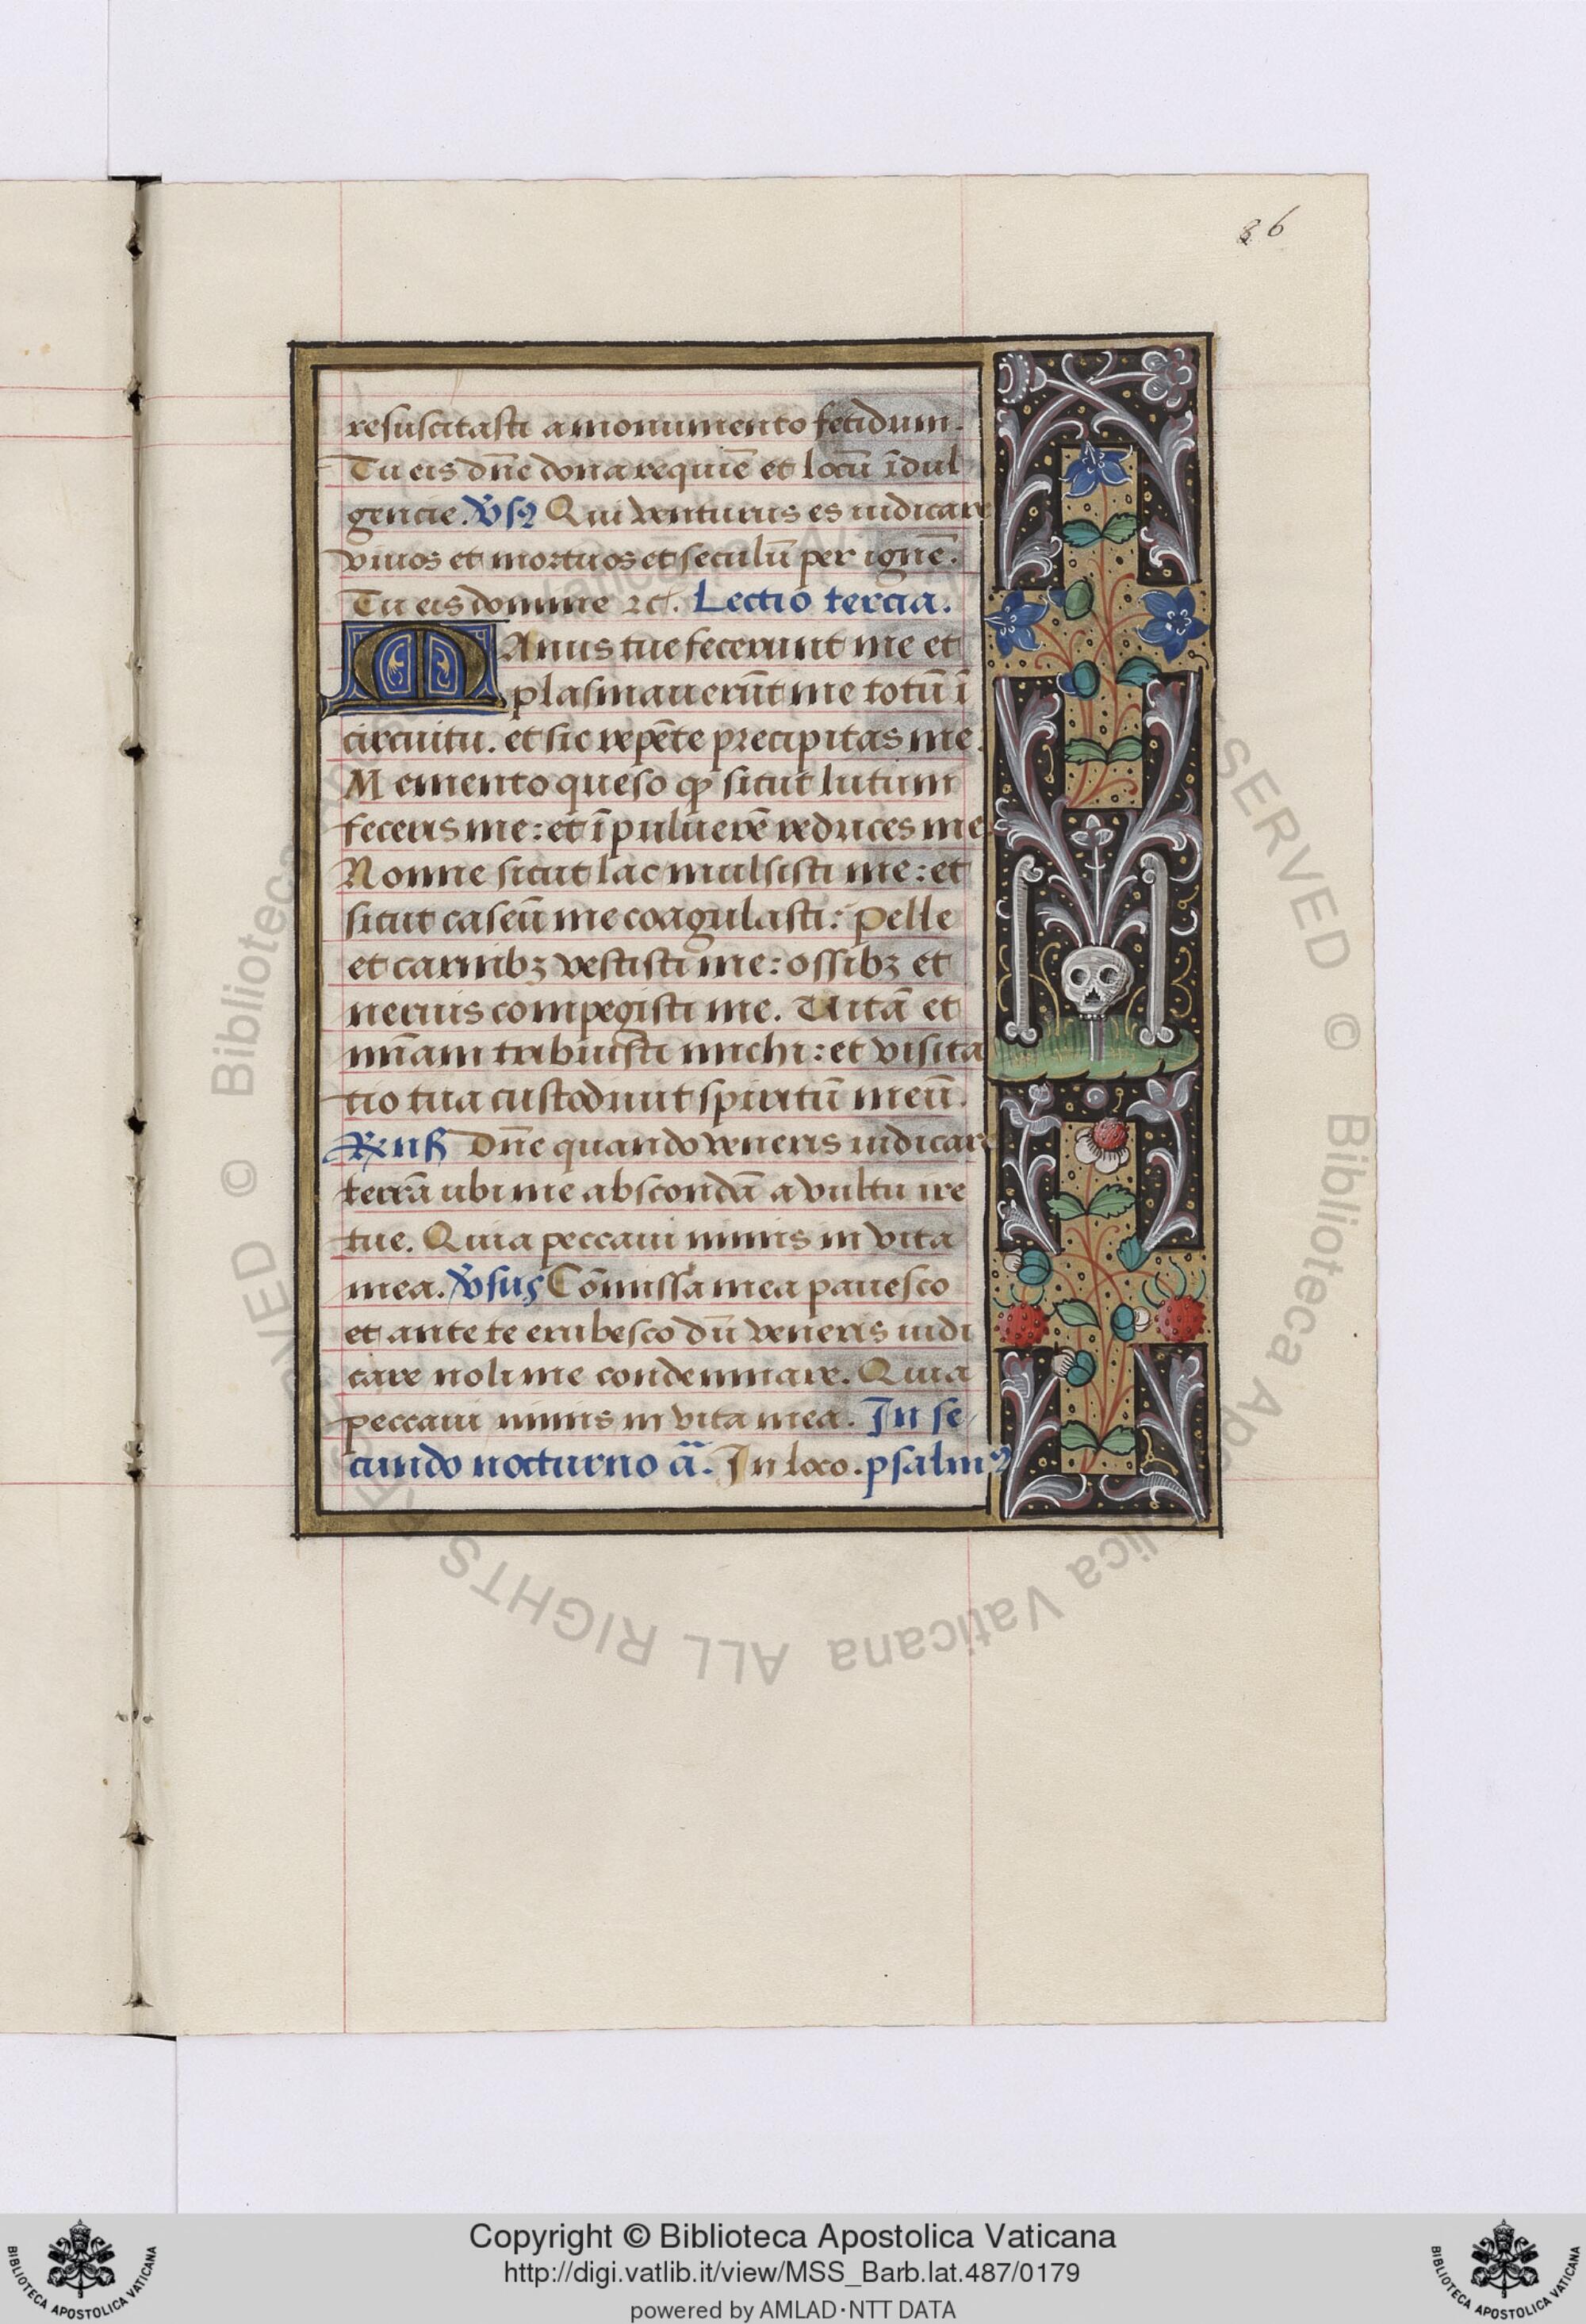 86
resuscitasti a monumento fetidum.
Tu eis dn̄e dona requiē et locū īdul
gencie. v̄sꝰ Qui venturus es iudicare
viuos et mortuos et seculū per ignē.
Tu eis domine ⁊c̃. Lectio tercia.
MAnus tue fecerunt me et
plasmauerūt me totū ī
circuitu. et sic repēte precipitas me.
Memento queso ꝙ sicut lutum
feceris me: et ī puluerē reduces me.
Nonne sicut lac mulsisti me: et
sicut caseū me coagulasti: pelle
et carnibꝫ vestisti me: ossibꝫ et
neruis compegisti me. Uitā et
mīam tribuisti michi: et visita
tio tua custodiuit spiritū meū.
dn̄e quando veneris iudicare
terrā ubi me abscondā a vultu ire
tue. Quia peccaui nimis in vita
mea. v̄sus Cōmissa mea pauesco
et ante te erubesco dū veneris iudi
care noli me condemnare. Quia
peccaui nimis in vita mea. In se
cundo nocturno ā. In loco. psalmꝰ
© Biblioteca Apostolica Vaticana ALL RIGHTS RESERVED
© Biblioteca Apostolica Vaticana ALL RIGHTS RESERVED
Copyright © Biblioteca Apostolica Vaticana
http://digi.vatlib.it/view/MSS_Barb.lat.487/0179
powered by AMLAD·NTT DATA
BIBLIOTECA APOSTOLICA VATICANA
BIBLIOTECA APOSTOLICA VATICANA